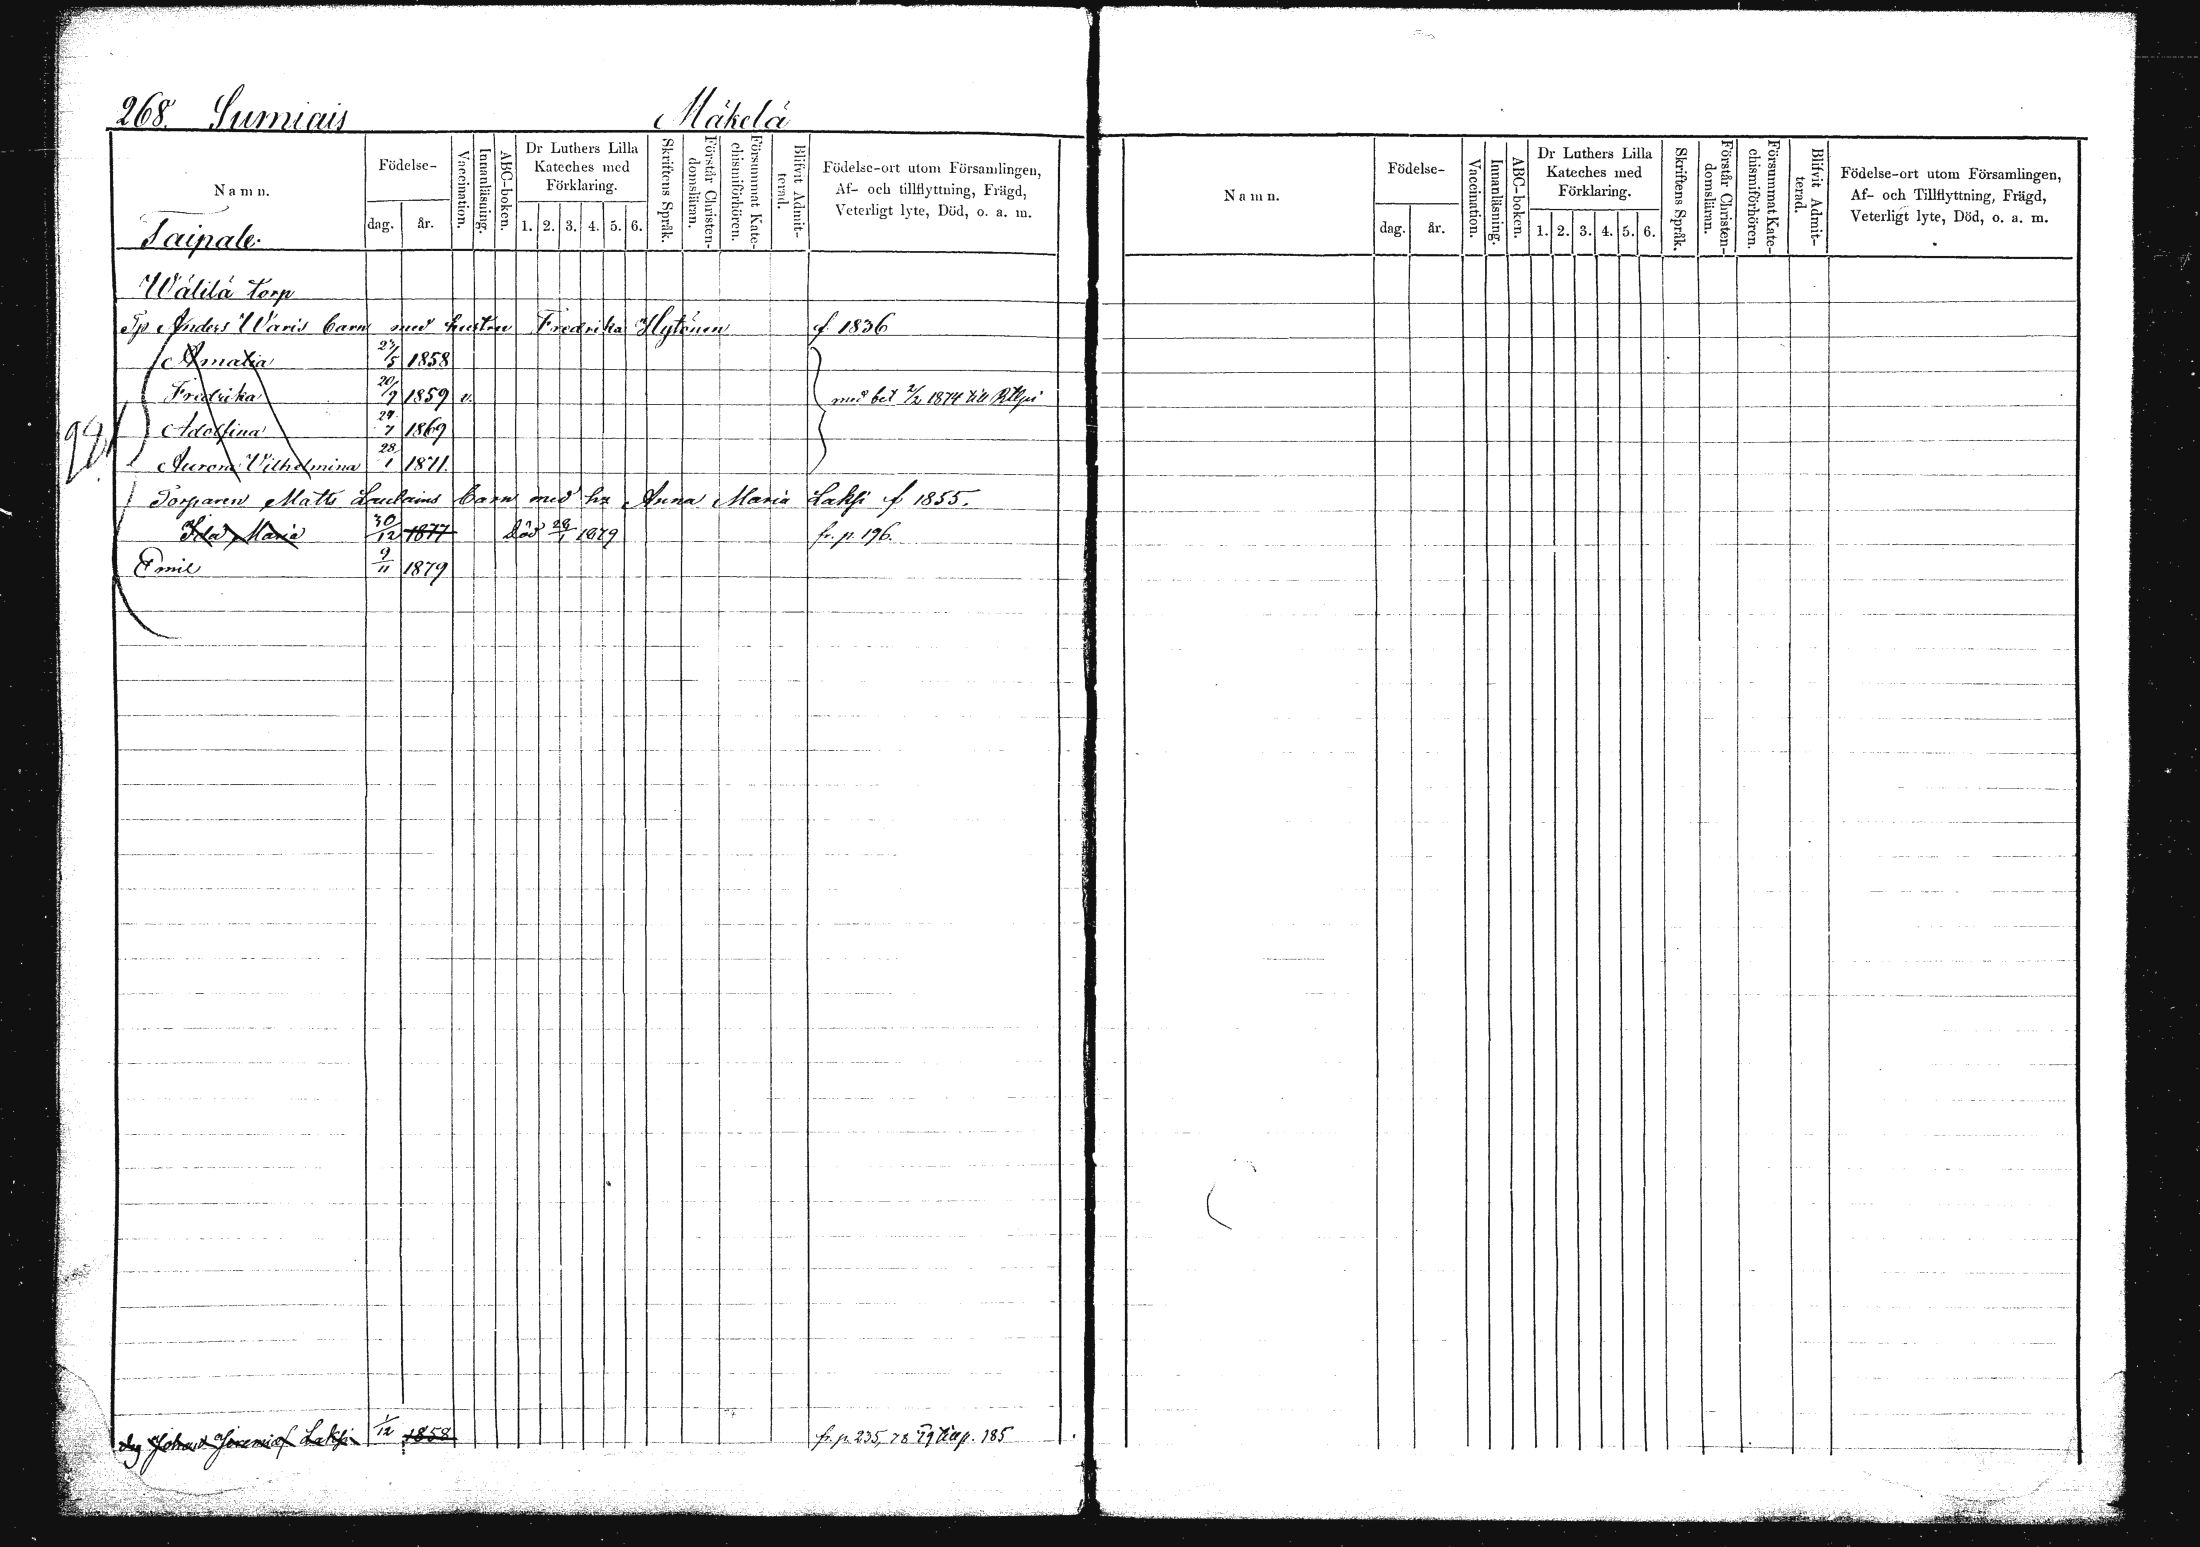 268. Sumiais Mäkelä
Namn.
Födelse-
dag. år.
Vaccination.
Innanläsning.
ABC-boken.
Dr Luthers Lilla
Kateches med
Förklaring.
1. 2. 3. 4. 5. 6.
Skriftens Språk.
Förstår Christen-
domsläran.
Försummat Kate-
chismiförhören.
Blifvit Admit-
terad.
Födelse-ort utom Församlingen,
Af- och tillflyttning, Frägd,
Veterligt lyte, Död, o. a. m.
Taipale.
Wälilä Torp
Tp Anders Waris barn med hustru Fredrika Hytönen f 1836
Amalia 27/5 1858
Fredrika 20/9 1859 v. med bet 2/2 1874 till
Adolfina 29/7 1869
Aurora Vilhelmina 28/1 1871.
Torparen Matts Laulains barn med hu Anna Maria Laksi f 1855.
Ida Maria 30/12 1877 Död 28/1 1879 fr. p. 196.
Emil 9/11 1879
drg Johan Jeremias Laksi 1/12 1858 fr. p. 235, 78 79 till p. 185
Namn.
Födelse-
dag. år.
Vaccination.
Innanläsning.
ABC-boken.
Dr Luthers Lilla
Kateches med
Förklaring.
1. 2. 3. 4. 5. 6.
Skriftens Språk.
Förstår Christen-
domsläran.
Försummat Kate-
chismiförhören.
Blifvit Admit-
terad.
Födelse-ort utom Församlingen,
Af- och Tillflyttning, Frägd,
Veterligt lyte, Död, o. a. m.